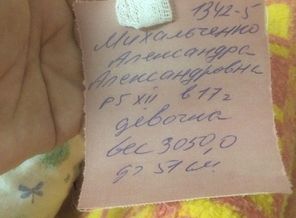 1342-5
Михальченко
Александра
Александровна
р 5 XII в 11 г
девочка
вес 3050,0
дл 51 см